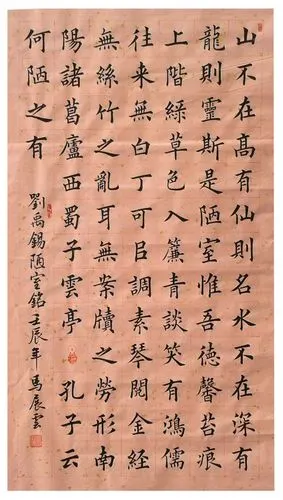 山不在髙有仙則名水不在深有
龍則靈斯是陋室惟吾徳馨苔痕
上階綠草色入簾青談笑有鴻儒
往来無白丁可㠯調素琴閱金経
無絲竹之亂耳無案牘之勞形南
陽諸葛廬西蜀子雲亭 孔子云
何陋之有
劉禹錫陋室銘壬辰年馬展雲